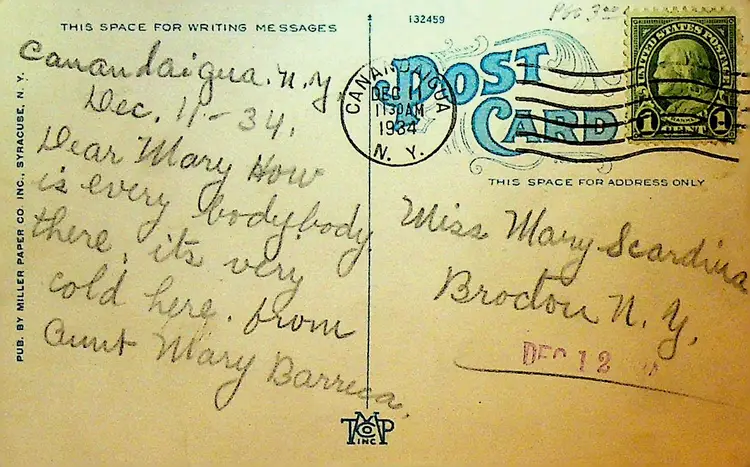 THIS SPACE FOR WRITING MESSAGES
132459
PUB. BY MILLER PAPER CO. INC., SYRACUSE, N. Y.
Canandaigua. N.Y.
Dec. 11-34.
Dear Mary How
is every bodybody
there, its very
cold here. from
Aunt Mary Barreca.
POST
CARD
CANANDAIGUA
DEC 11
11 30 AM
1934
N. Y.
UNITED STATES POSTAGE
FRANKLIN
1 CENT 1
THIS SPACE FOR ADDRESS ONLY
Miss Mary Scardina
Brocton N. Y.
DEC 12
INC